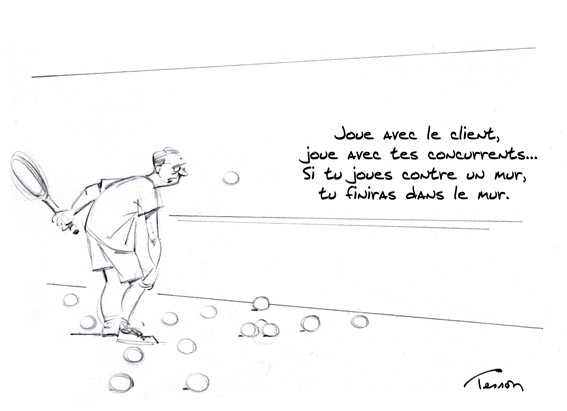 Joue avec le client,
joue avec tes concurrents...
Si tu joues contre un mur,
tu finiras dans le mur.
Tesson